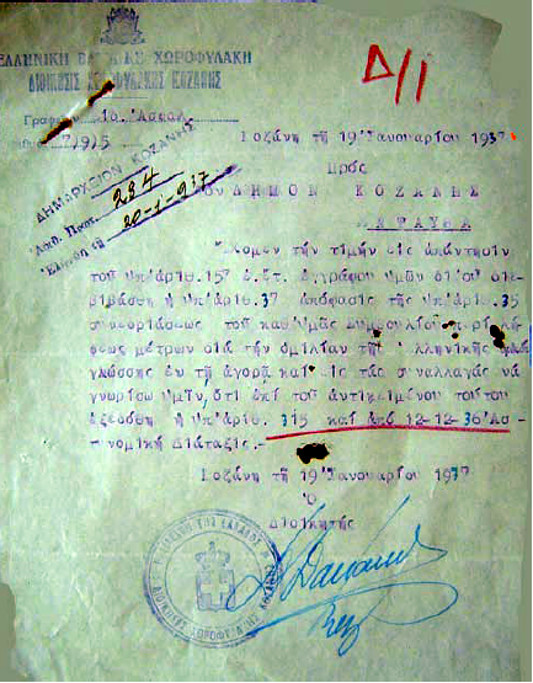 ΕΛΛΗΝΙΚΗ ΒΑΣ/ΚΗ ΧΩΡΟΦΥΛΑΚΗ
ΔΙΟΙΚΗΣΙΣ ΧΩΡΟΦΥΛΑΚΗΣ ΚΟΖΑΝΗΣ
Δ/Ι
Γραφεῖον 1ο. Ἀσφαλ.
7/9/5
Κοζάνη τῇ 19 Ἰανουαρίου 1937
ΔΗΜΑΡΧΕΙΟΝ ΚΟΖΑΝΗΣ
Ἀριθ. Πρωτ. 284
Ἐλήφθη τῇ 20-1-937
Πρός
τόν ΔΗΜΟΝ ΚΟΖΑΝΗΣ
ΕΝΤΑΥΘΑ
Ἔχομεν τήν τιμήν εἰς ἀπάντησιν
τοῦ ὑπ'ἀριθ. 157 ἐ.ἔτ. ἐγγράφου ὑμῶν δι'οὗ διε-
βιβάσθη ἡ ὑπ'ἀριθ. 37 ἀπόφασις τῆς ὑπ'ἀριθ. 35
συνεδριάσεως τοῦ καθ'ὑμᾶς Συμβουλίου περί λή-
ψεως μέτρων διά τήν ὁμιλίαν τῆς Ἑλληνικῆς
γλώσσης ἐν τῇ ἀγορᾷ καί εἰς τάς συναλλαγάς νά
γνωρίσω ὑμῖν, ὅτι ἐπί τοῦ ἀντικειμένου τούτου
ἐξεδόθη ἡ ὑπ'ἀριθ. 315 καί ἀπό 12-12-36 Ἀσ-
τυνομική Διάταξις.-
Κοζάνη τῇ 19 Ἰανουαρίου 1937
Ὁ
Διοικητής